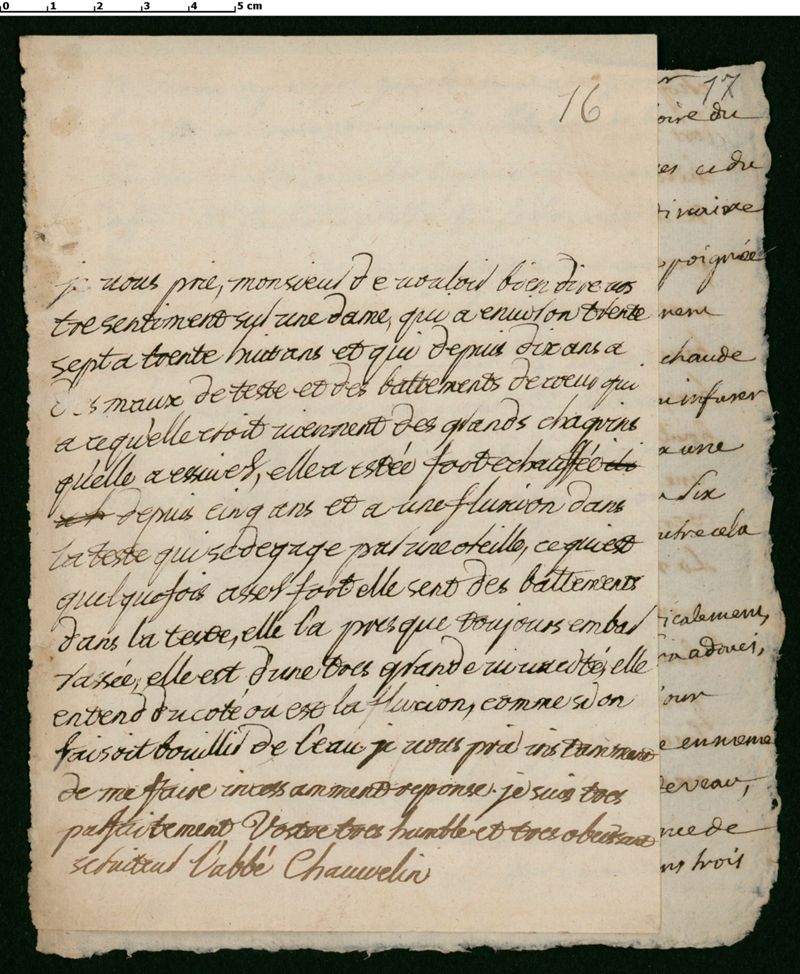 0 1 2 3 4 5 cm
16
je vous prie, monsieur de vouloir bien dire vos
tre sentiment sur une dame, qui a environ trente
sept a trente huit ans et qui depuis dix ans a
des maux de teste et des battements de coeur qui
a ce qu'elle croit viennent des grands chagrins
qu'elle a essuiez, elle a estée fort echauffée
depuis cinq ans et a une fluxion dans
la teste qui se degage par une oreille, ce qui est
quelquefois assez fort elle sent des battements
dans la teste, elle l'a presque toujours embar
rassée, elle est d'une tres grande vivacité, elle
entend du coté ou est la fluxion, comme si on
faisoit bouillir de l'eau je vous prie instamment
de me faire incessamment reponse. je suis tres
parfaitement Vostre tres humble et tres obeissant
serviteur l'abbé Chauvelin
17
oire du
es ce du
poignée
chaude
infuser
une
six
outre cela
icalement,
adouci,
jour
e en meme
de veau,
nce de
ns trois